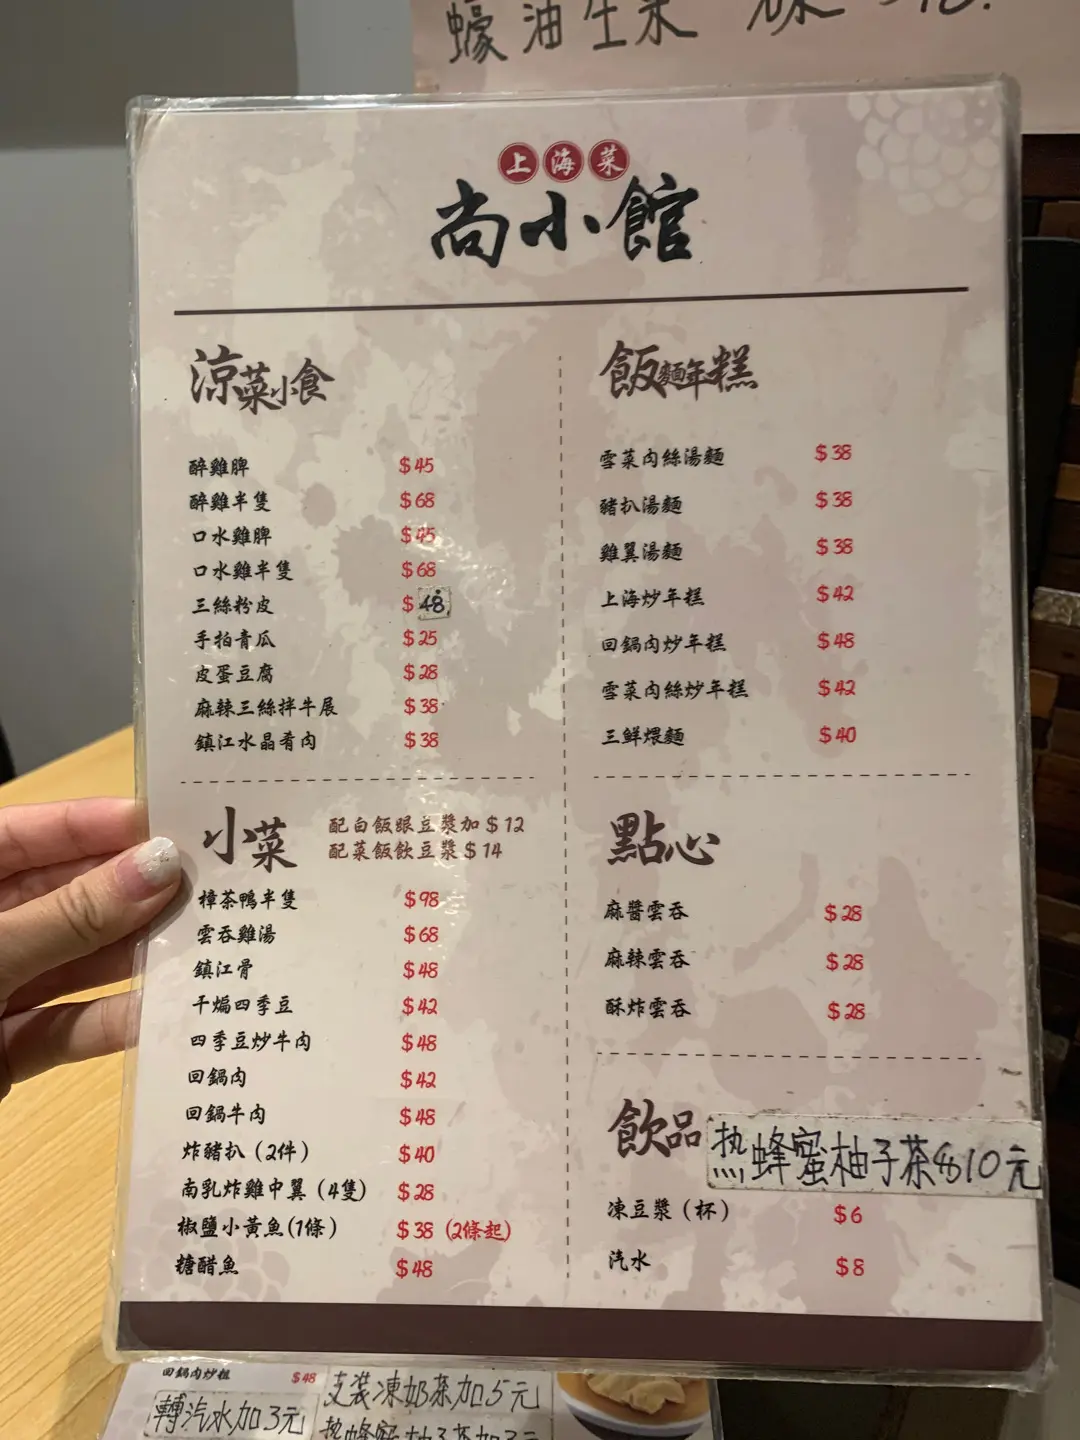 蠔油生菜
上海菜
尚小館
涼菜小食
醉雞脾 $45
醉雞半隻 $68
口水雞脾 $45
口水雞半隻 $68
三絲粉皮 $48
手拍青瓜 $25
皮蛋豆腐 $28
麻辣三絲拌牛展 $38
鎮江水晶肴肉 $38
小菜
配白飯跟豆漿加$12
配菜飯飲豆漿$14
樟茶鴨半隻 $98
雲吞雞湯 $68
鎮江骨 $48
干煸四季豆 $42
四季豆炒牛肉 $48
回鍋肉 $42
回鍋牛肉 $48
炸豬扒（2件） $40
南乳炸雞中翼（4隻） $28
椒鹽小黃魚(1條） $38 (2條起)
糖醋魚 $48
飯麵年糕
雪菜肉絲湯麵 $38
豬扒湯麵 $38
雞翼湯麵 $38
上海炒年糕 $42
回鍋肉炒年糕 $48
雪菜肉絲炒年糕 $42
三鮮煨麵 $40
點心
麻醬雲吞 $28
麻辣雲吞 $28
酥炸雲吞 $28
飲品
热蜂蜜柚子茶$10元
凍豆漿（杯） $6
汽水 $8
回鍋肉炒粗 $48
轉汽水加3元
支裝凍奶茶加5元